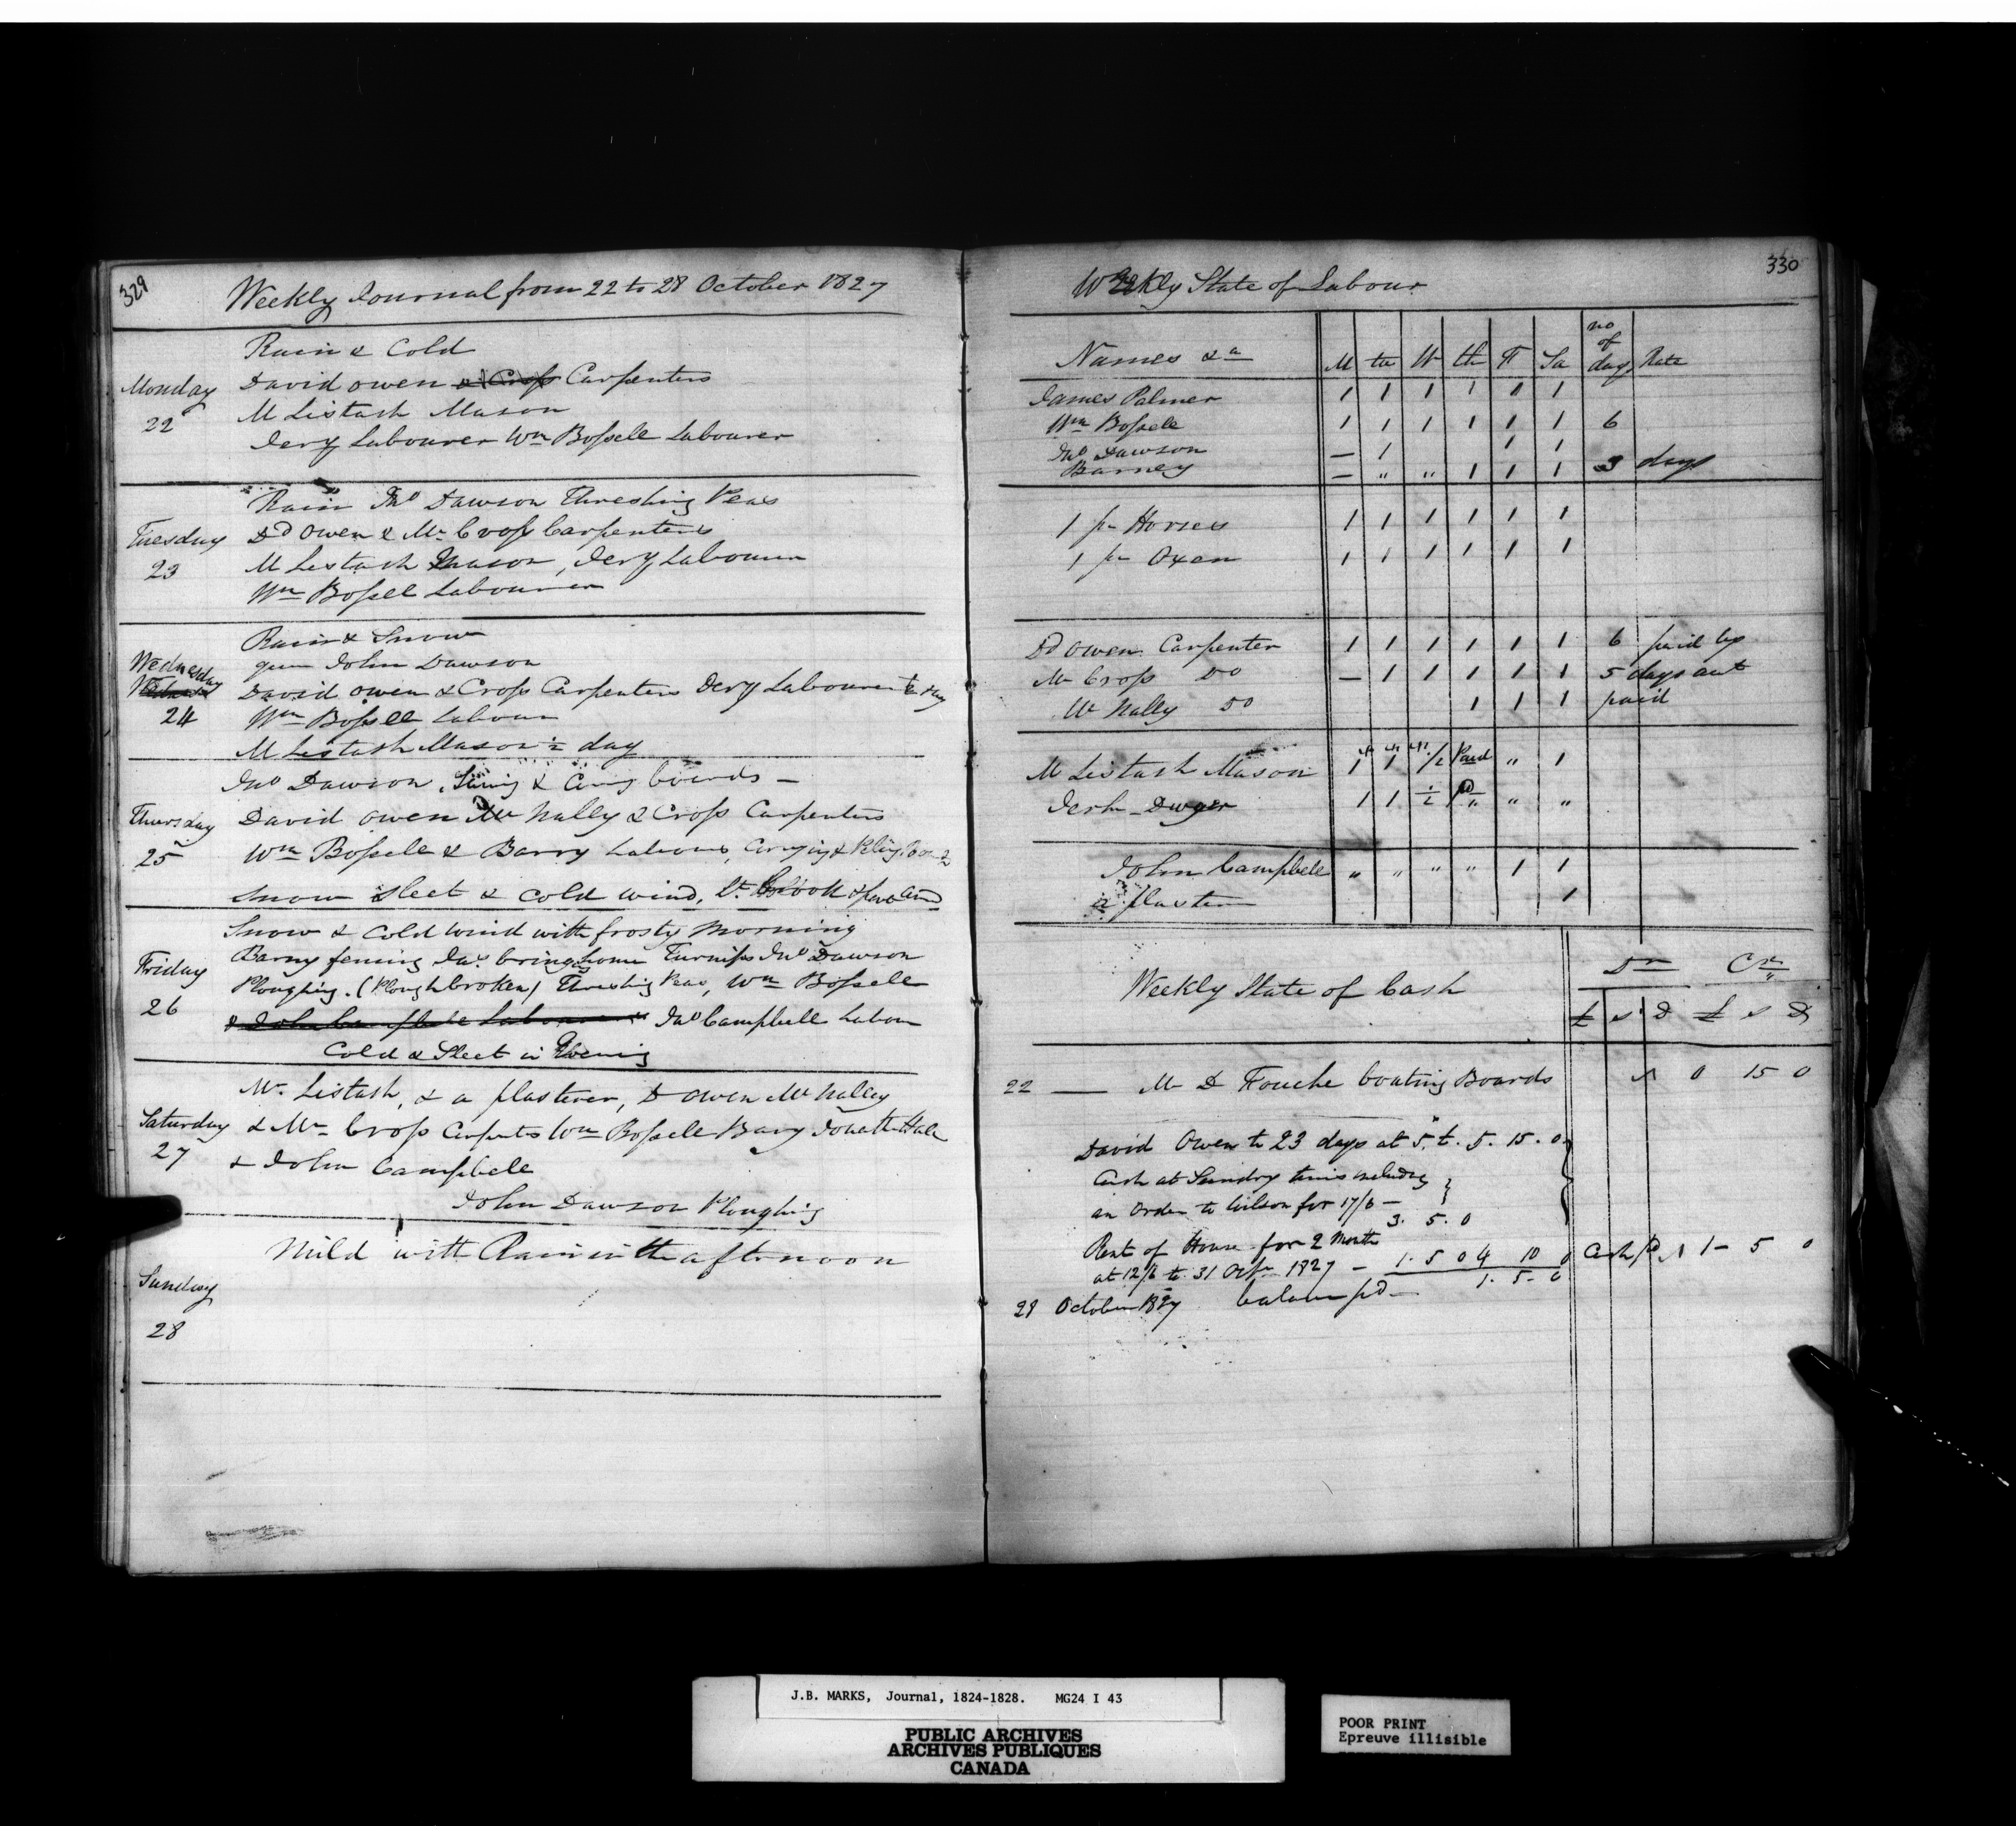 329
Weekly Journal from 22 to 28 October 1827
Monday
22
Rain & Cold
David Owen & Cross Carpenters
M Listash Mason
Jery Labourer Wm Bossele Labourer
Tuesday
23
Rain Jno Dawson Threshing Peas
Dd Owen & Mr Cross Carpenters
M Listash Mason, Jery Labourer
Wm Bossell Labourer
Wednesday
24
Rain & Snow
John Dawson
David Owen & Cross Carpenters Jery Labourer ½ day
Wm Bossell Labour
M Listash Mason ½ day
Thursday
25
Jno Dawson, & boards —
David Owen Mc Nally & Cross Carpenters
Wm Bossele & Barry Labours, Carrying &
Snow Sleet & Cold Wind,
Friday
26
Snow & Cold Wind with frosty Morning
Barny fencing Jas. bringing home Turnips Jno Dawson
Ploughing. (Plough broken) Threshing Peas, Wm Bossele
& John Campbele Labourers Jno Campbell Labour
Cold & Sleet in Evening
Saturday
27
Mr. Listash, & a plasterer, D Owen Mc Nalley
& Mr Cross Carpents Wm Bossele Barry Jonath Hale
& John Campbele
John Dawson Ploughing
Sunday
28
Mild with Rain in the afternoon
330
Weekly State of Labour
Names &a M tu W th F Sa no of days Rate
James Palmer 1 1 1 1 1 1
Wm Bossele 1 1 1 1 1 1 6
Jno Dawson — 1 1 1
Barney — " " 1 1 1 3 days
1 pr Horses 1 1 1 1 1 1
1 pr Oxen 1 1 1 1 1 1
Dd Owen Carpenter 1 1 1 1 1 1 6 paid up
Mr Cross Do — 1 1 1 1 1 5 days
Mc Nally Do 1 1 1 paid
M Listash Mason 1 1 1/2 Paid " 1
Jerh Dwyer 1 1 ½ pd " "
John Campbele " " " " 1 1
a plasterer 1
Weekly State of Cash
Dr Cr
£ s D £ s D
22 — M D Fouche boating Boards 0 15 0
David Owen to 23 days at 5. £. 5. 15. 0
Cash at Sundry times including
an Order to Wilson for 17/6 —
3. 5. 0
Rent of House for 2 Month
at 12/6 to 31 Octr 1827 — 1. 5 0 4 10 0 Cash pd 1 - 5 0
1. 5. 0
28 October 1827 balance pd —
J.B. MARKS, Journal, 1824-1828. MG24 I 43
PUBLIC ARCHIVES
ARCHIVES PUBLIQUES
CANADA
POOR PRINT
Epreuve illisible